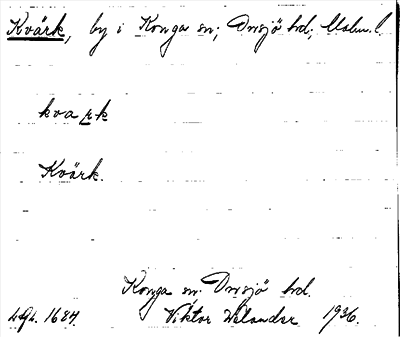 Kvärk, by i Konga sn; Onsjö hd; Malm. l.
kvark
Kvärk.
Konga sn. Onsjö hd.
1684. Viktor Welander 1936.